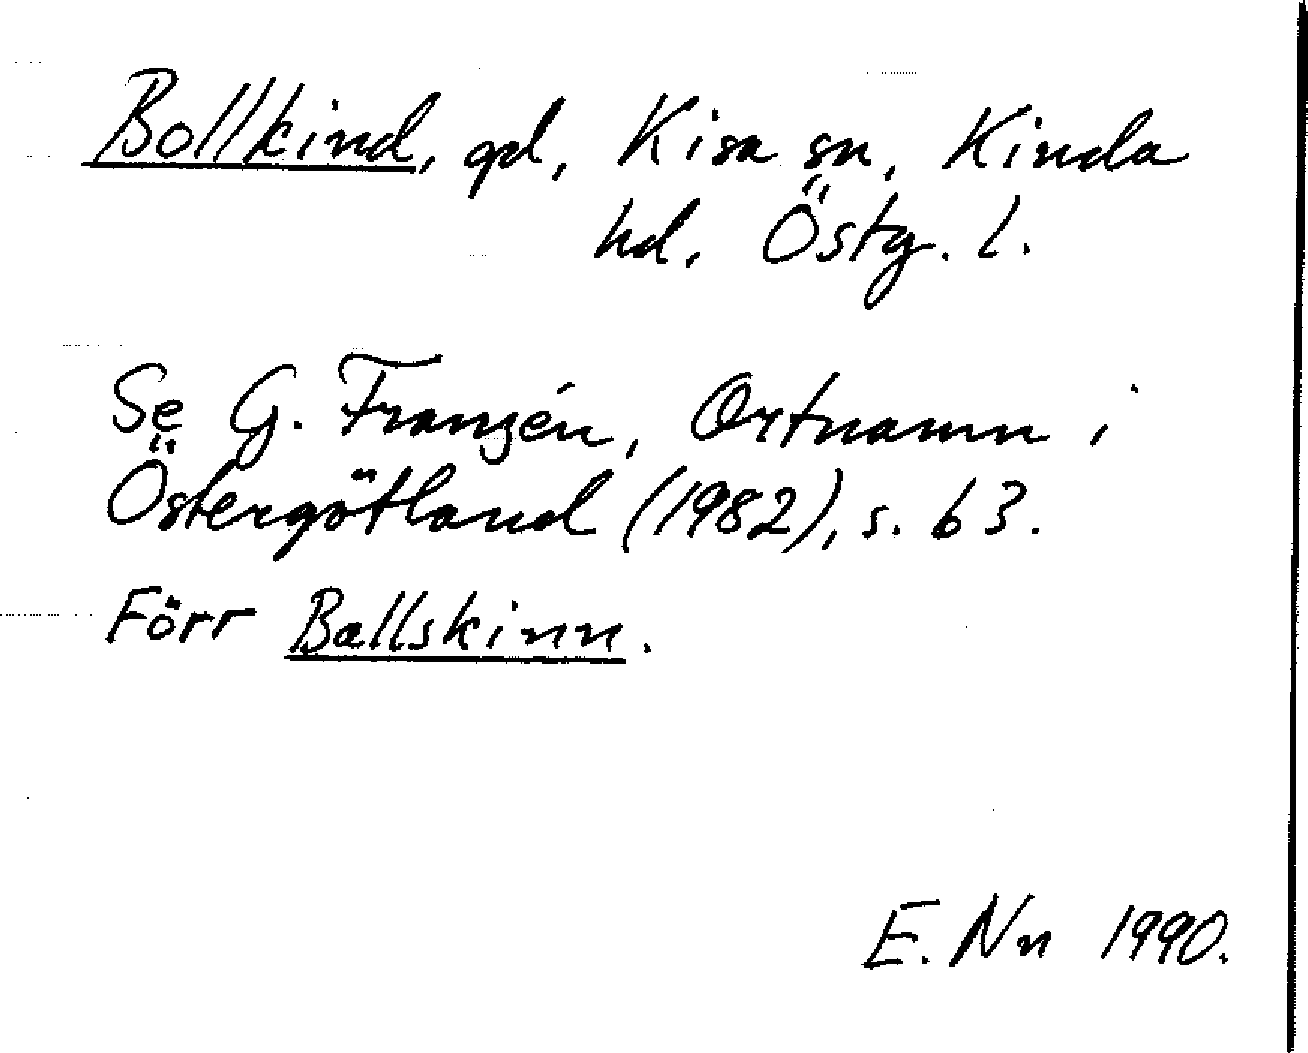 Bollkind, gd, Kisa sn, Kinda
hd, Östg. l.
Se G. Franzén, Ortnamn i
Östergötland (1982), s. 63.
Förr Ballskinn.
E. Nn 1990.